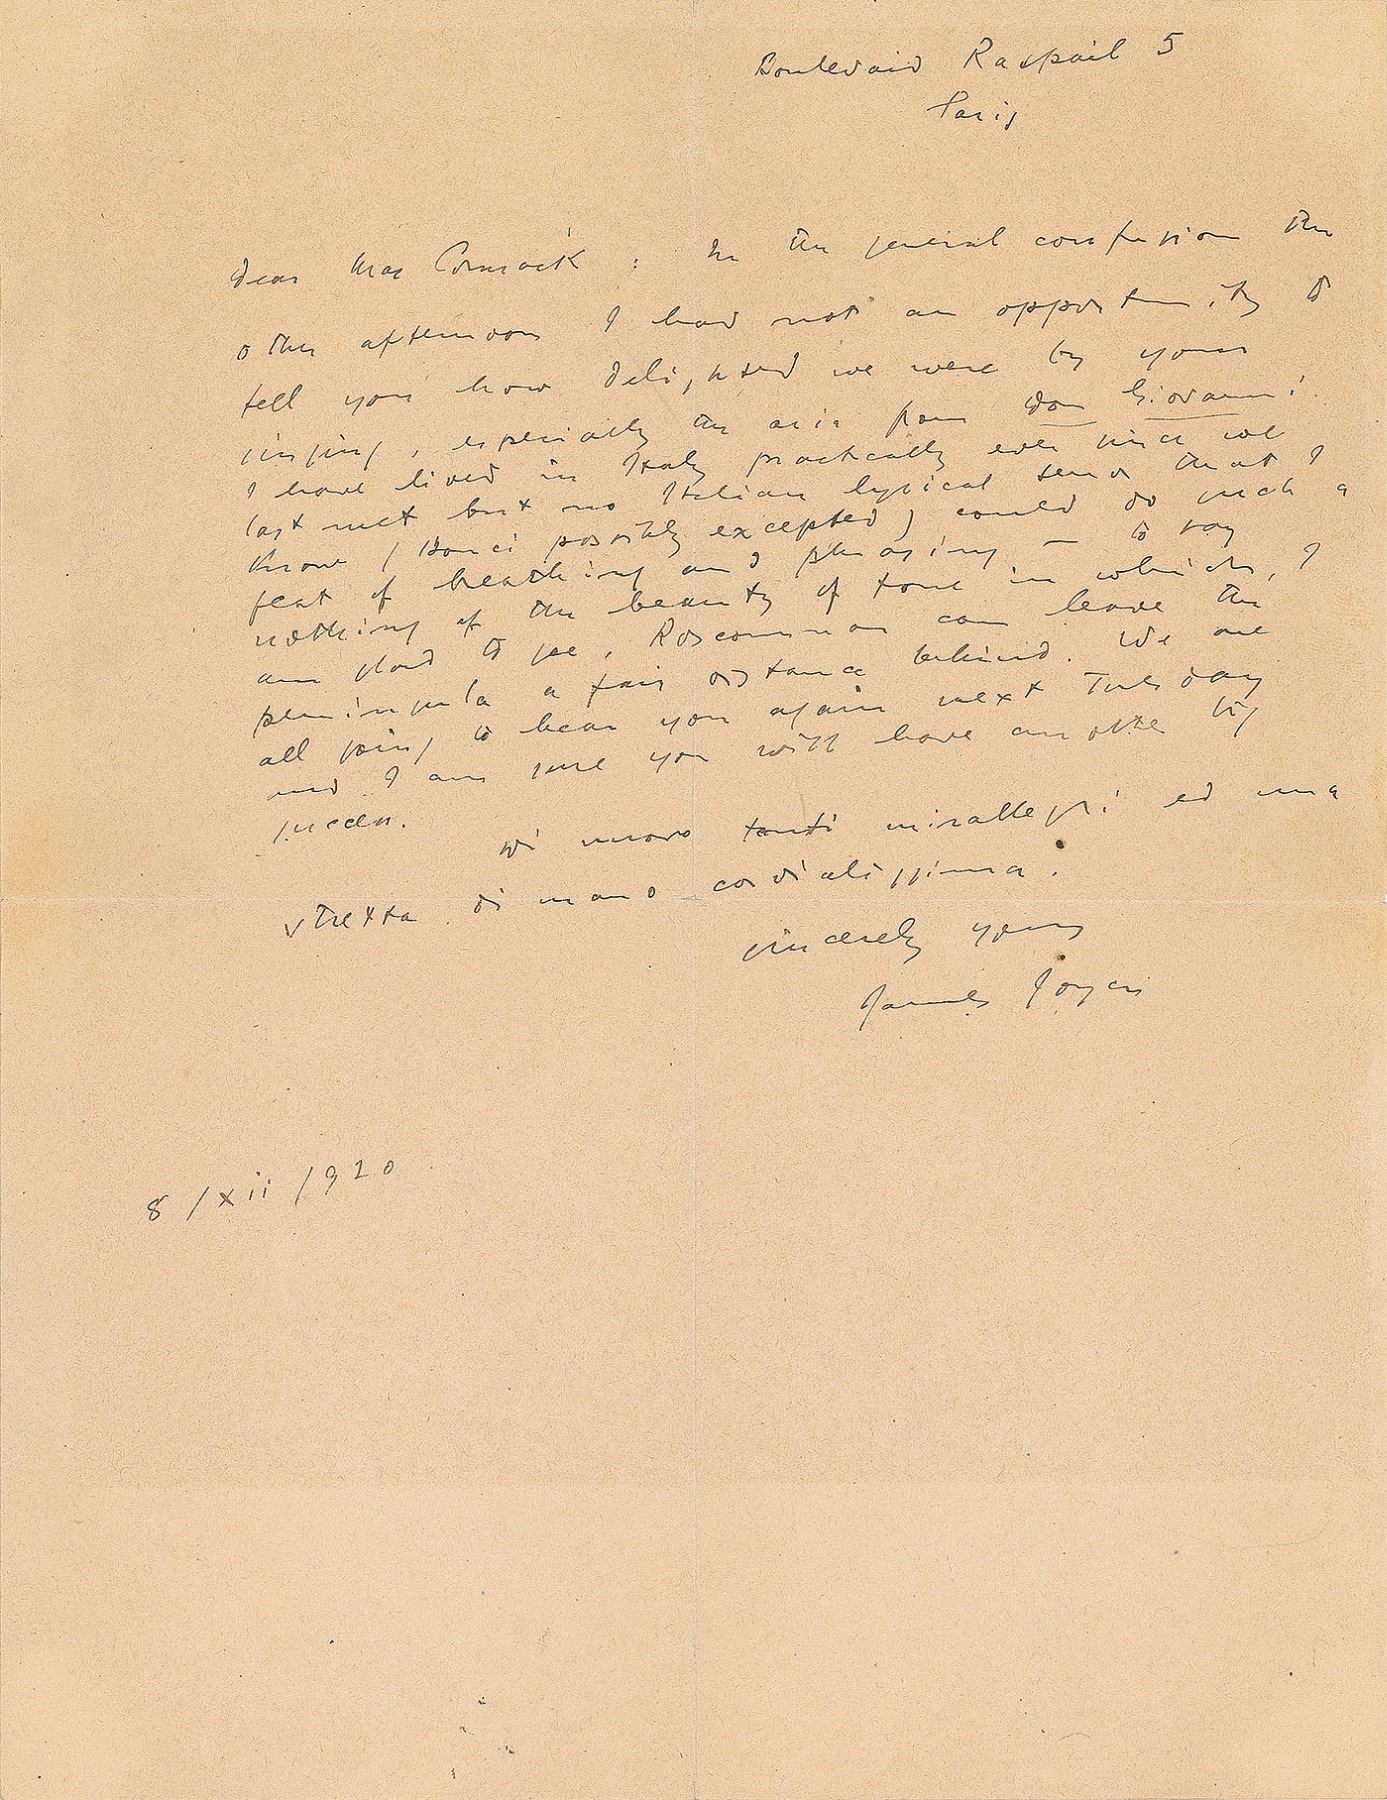 Boulevard Raspail 5
Paris
Dear MacCormack : In the general confusion the
other afternoon I had not an opportunity to
tell you how delighted we were by your
singing, especially the aria from Don Giovanni.
I have lived in Italy practically ever since we
last met but no Italian lyrical tenor that I
know (Bonci possibly excepted) could do such a
feat of breathing and phrasing — to say
nothing of the beauty of tone in which, I
am glad to see, Roscommon can leave the
peninsula a fair distance behind. We are
all going to hear you again next Tuesday
and I am sure you will have another big
success.
Di nuovo tanti mirallegri ed una
stretta di mano cordialissima.
Sincerely yours
James Joyce
8/xii/920